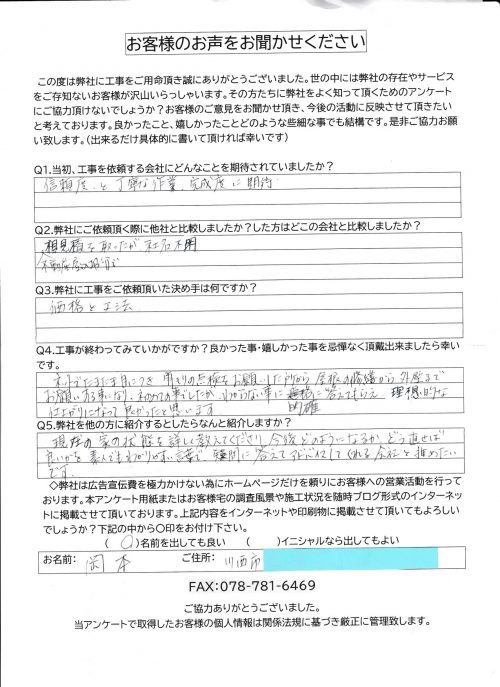 お客様のお声をお聞かせください
この度は弊社に工事をご用命頂き誠にありがとうございました。世の中には弊社の存在やサービス
をご存知ないお客様が沢山いらっしゃいます。その方たちに弊社をよく知って頂くためのアンケート
にご協力頂けないでしょうか？お客様のご意見をお聞かせ頂き、今後の活動に反映させて頂きたい
と考えております。良かったこと、嬉しかったことどのような些細な事でも結構です。是非ご協力お願
い致します。（出来るだけ具体的に書いて頂ければ幸いです）
Q1.当初、工事を依頼する会社にどんなことを期待されていましたか？
信頼度と丁寧な作業、完成度に期待
Q2.弊社にご依頼頂く際に他社と比較しましたか？した方はどこの会社と比較しましたか？
相見積を取ったが、社名不明
不動産屋の
Q3.弊社に工事をご依頼頂いた決め手は何ですか？
価格と工法
Q4.工事が終わってみていかがですか？良かった事・嬉しかった事を忌憚なく頂戴出来ましたら幸い
です。
ネットでたまたま目につき 雨もりの点検をお願いした所から 屋根の修繕から 外壁まで
お願いする事になり、わからない事に 的確に答えてもらえ 理想的な
仕上がりになって良かったと思います
Q5.弊社を他の方に紹介するとしたらなんと紹介しますか？
現在の家の状態を詳しく教えてくださり、今後どのようになるか、どう直せば
良いかを素人でもわかりやすい言葉で、疑問に答えてアドバイスしてくれる会社と推めたい
です。
◇弊社は広告宣伝費を極力かけない為にホームページだけを頼りにお客様への営業活動を行って
おります。本アンケート用紙またはお客様宅の調査風景や施工状況を随時ブログ形式のインターネッ
トに掲載させて頂いております。上記内容をインターネットや印刷物に掲載させて頂いてもよろしい
でしょうか？下記の中から〇印をお付け下さい。
（ 〇 ）名前を出しても良い （ ）イニシャルなら出してもよい
お名前： 岡本 ご住所： 川西市
FAX：078-781-6469
ご協力ありがとうございました。
当アンケートで取得したお客様の個人情報は関係法規に基づき厳正に管理致します。